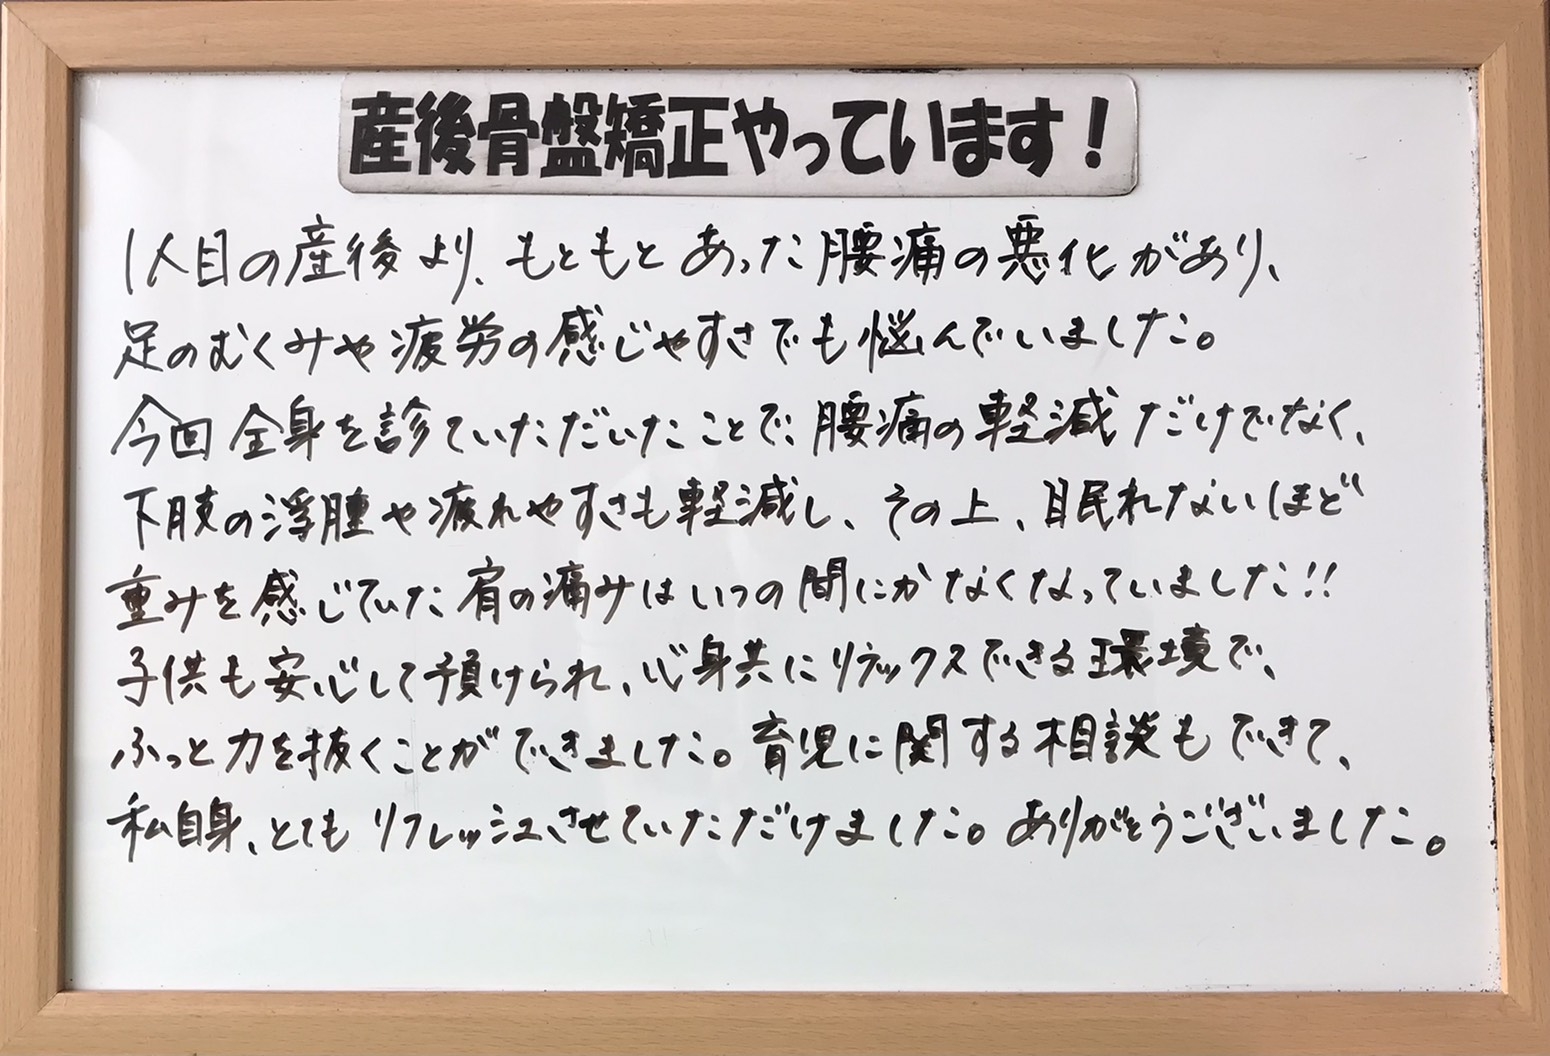 産後骨盤矯正やっています！
1人目の産後より、もともとあった腰痛の悪化があり、
足のむくみや疲労の感じやすさでも悩んでいました。
今回全身を診ていただいたことで、腰痛の軽減だけでなく、
下肢の浮腫や疲れやすさも軽減し、その上、眠れないほど
重みを感じていた肩の痛みはいつの間にかなくなっていました!!
子供も安心して預けられ、心身共にリラックスできる環境で、
ふっと力を抜くことができました。育児に関する相談もできて、
私自身、とてもリフレッシュさせていただけました。ありがとうございました。